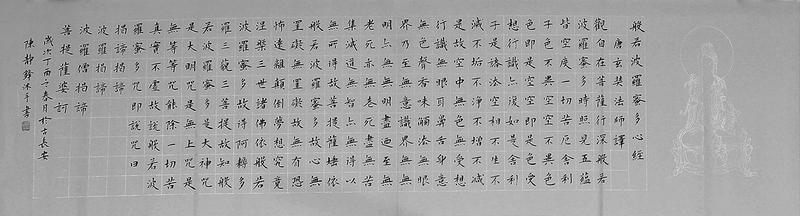 般若波羅蜜多心經
唐玄奘法師譯
觀自在菩薩行深般若
波羅蜜多時照見五蘊
皆空度一切苦厄舍利
子色不異空空不異色
色即是空空即是色受
想行識亦復如是舍利
子是諸法空相不生不
滅不垢不淨不增不減
是故空中無色無受想
行識無眼耳鼻舌身意
無色聲香味觸法無眼
界乃至無意識界無無
明亦無無明盡乃至無
老死亦無老死盡無苦
集滅道無智亦無得以
無所得故菩提薩埵依
般若波羅蜜多故心無
罣礙無罣礙故無有恐
怖遠離顛倒夢想究竟
涅槃三世諸佛依般若
波羅蜜多故得阿耨多
羅三藐三菩提故知般
若波羅蜜多是大神咒
是大明咒是無上咒是
無等等咒能除一切苦
真實不虛故說般若波
羅蜜多咒即說咒曰
揭諦揭諦
波羅揭諦
波羅僧揭諦
菩提薩婆訶
歲次丁酉年春月於古長安
陳靜鋒沐手書